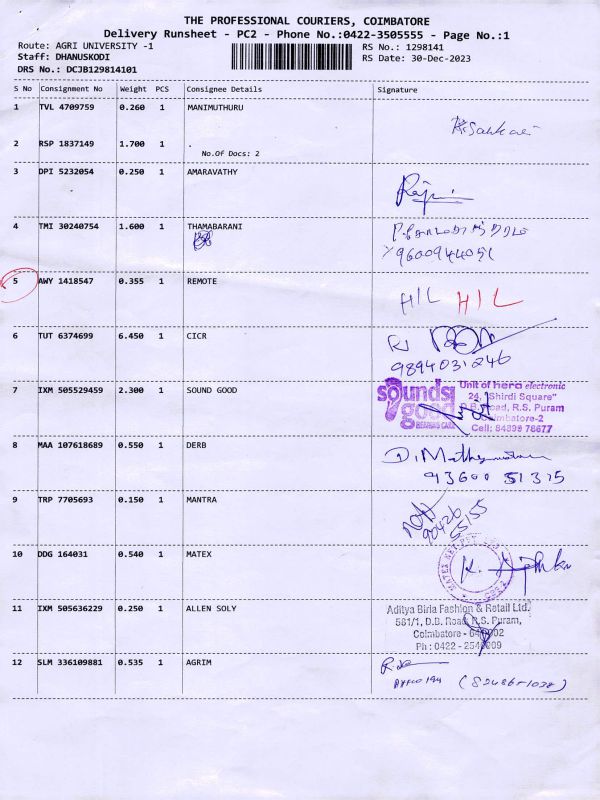 THE PROFESSIONAL COURIERS, COIMBATORE
Delivery Runsheet - PC2 - Phone No.:0422-3505555 - Page No.:1
Route: AGRI UNIVERSITY -1 RS No.: 1298141
Staff: DHANUSKODI RS Date: 30-Dec-2023
DRS No.: DCJB129814101
S No Consignment No Weight PCS Consignee Details Signature
1 TVL 4709759 0.260 1 MANIMUTHURU
2 RSP 1837149 1.700 1 .
No.Of Docs: 2
3 DPI 5232054 0.250 1 AMARAVATHY
4 TMI 30240754 1.600 1 THAMABARANI
9600944051
5 AWY 1418547 0.355 1 REMOTE
H/L H/L
6 TUT 6374699 6.450 1 CICR
9894031246
7 IXM 505529459 2.300 1 SOUND GOOD
sounds good
HEARING CARE
Unit of hero electronic
24, "Shirdi Square"
D.B. Road, R.S. Puram
Coimbatore-2
Cell: 84899 78677
8 MAA 107618689 0.550 1 DERB
93600 51315
9 TRP 7705693 0.150 1 MANTRA
90426
55155
10 DDG 164031 0.540 1 MATEX
11 IXM 505636229 0.250 1 ALLEN SOLY
Aditya Birla Fashion & Retail Ltd.
581/1, D.B. Road, R.S. Puram,
Coimbatore - 641002
Ph : 0422 -
12 SLM 336109881 0.535 1 AGRIM